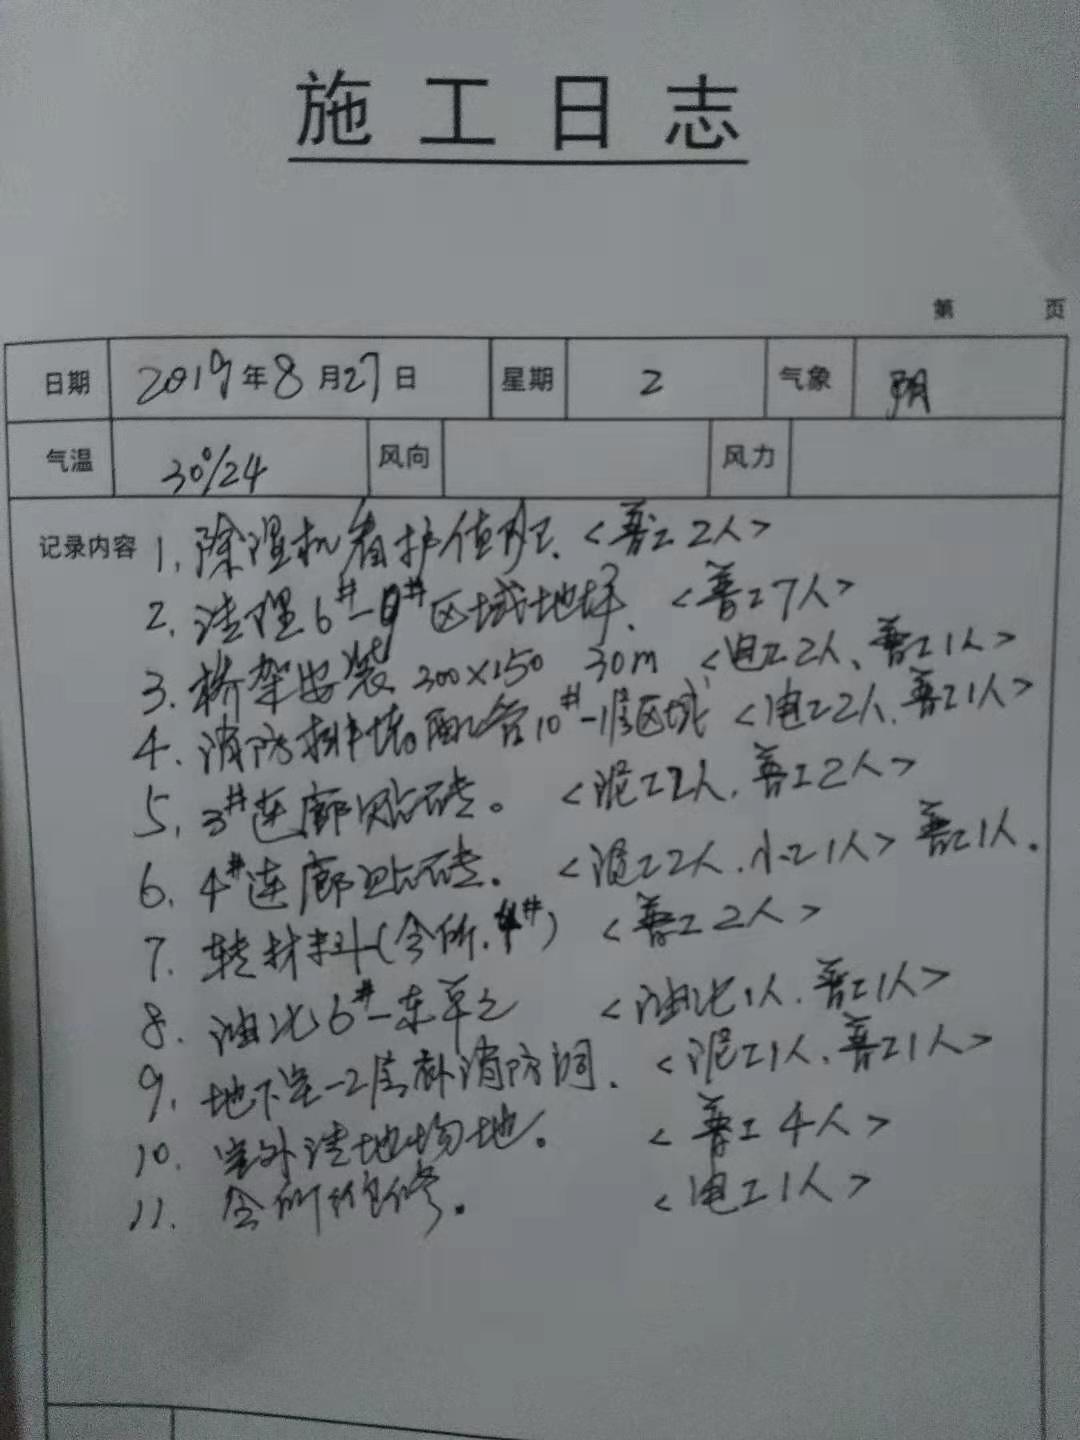 施工日志
第 页
日期 2019年8月27日 星期 2 气象 阴
气温 30°/24 风向 风力
记录内容 1. 除湿机看护值班. <普工2人>
2. 清理6#-9#区域地坪. <普工7人>
3. 桥架安装 200×150 30m <电工2人、普工1人>
4. 消防排烟配管10#-1层区域 <电工2人.普工1人>
5. 3#连廊贴砖。 <泥工2人.普工2人>
6. 4#连廊贴砖. <泥工2人.小工1人> 普工1人.
7. 转材料(会所.4#) <普工2人>
8. 油化6#-东单元 <油化1人.普工1人>
9. 地下室-2层补消防洞. <泥工1人.普工1人>
10. 室外清地场地。 <普工4人>
11. 会所维修. <电工1人>